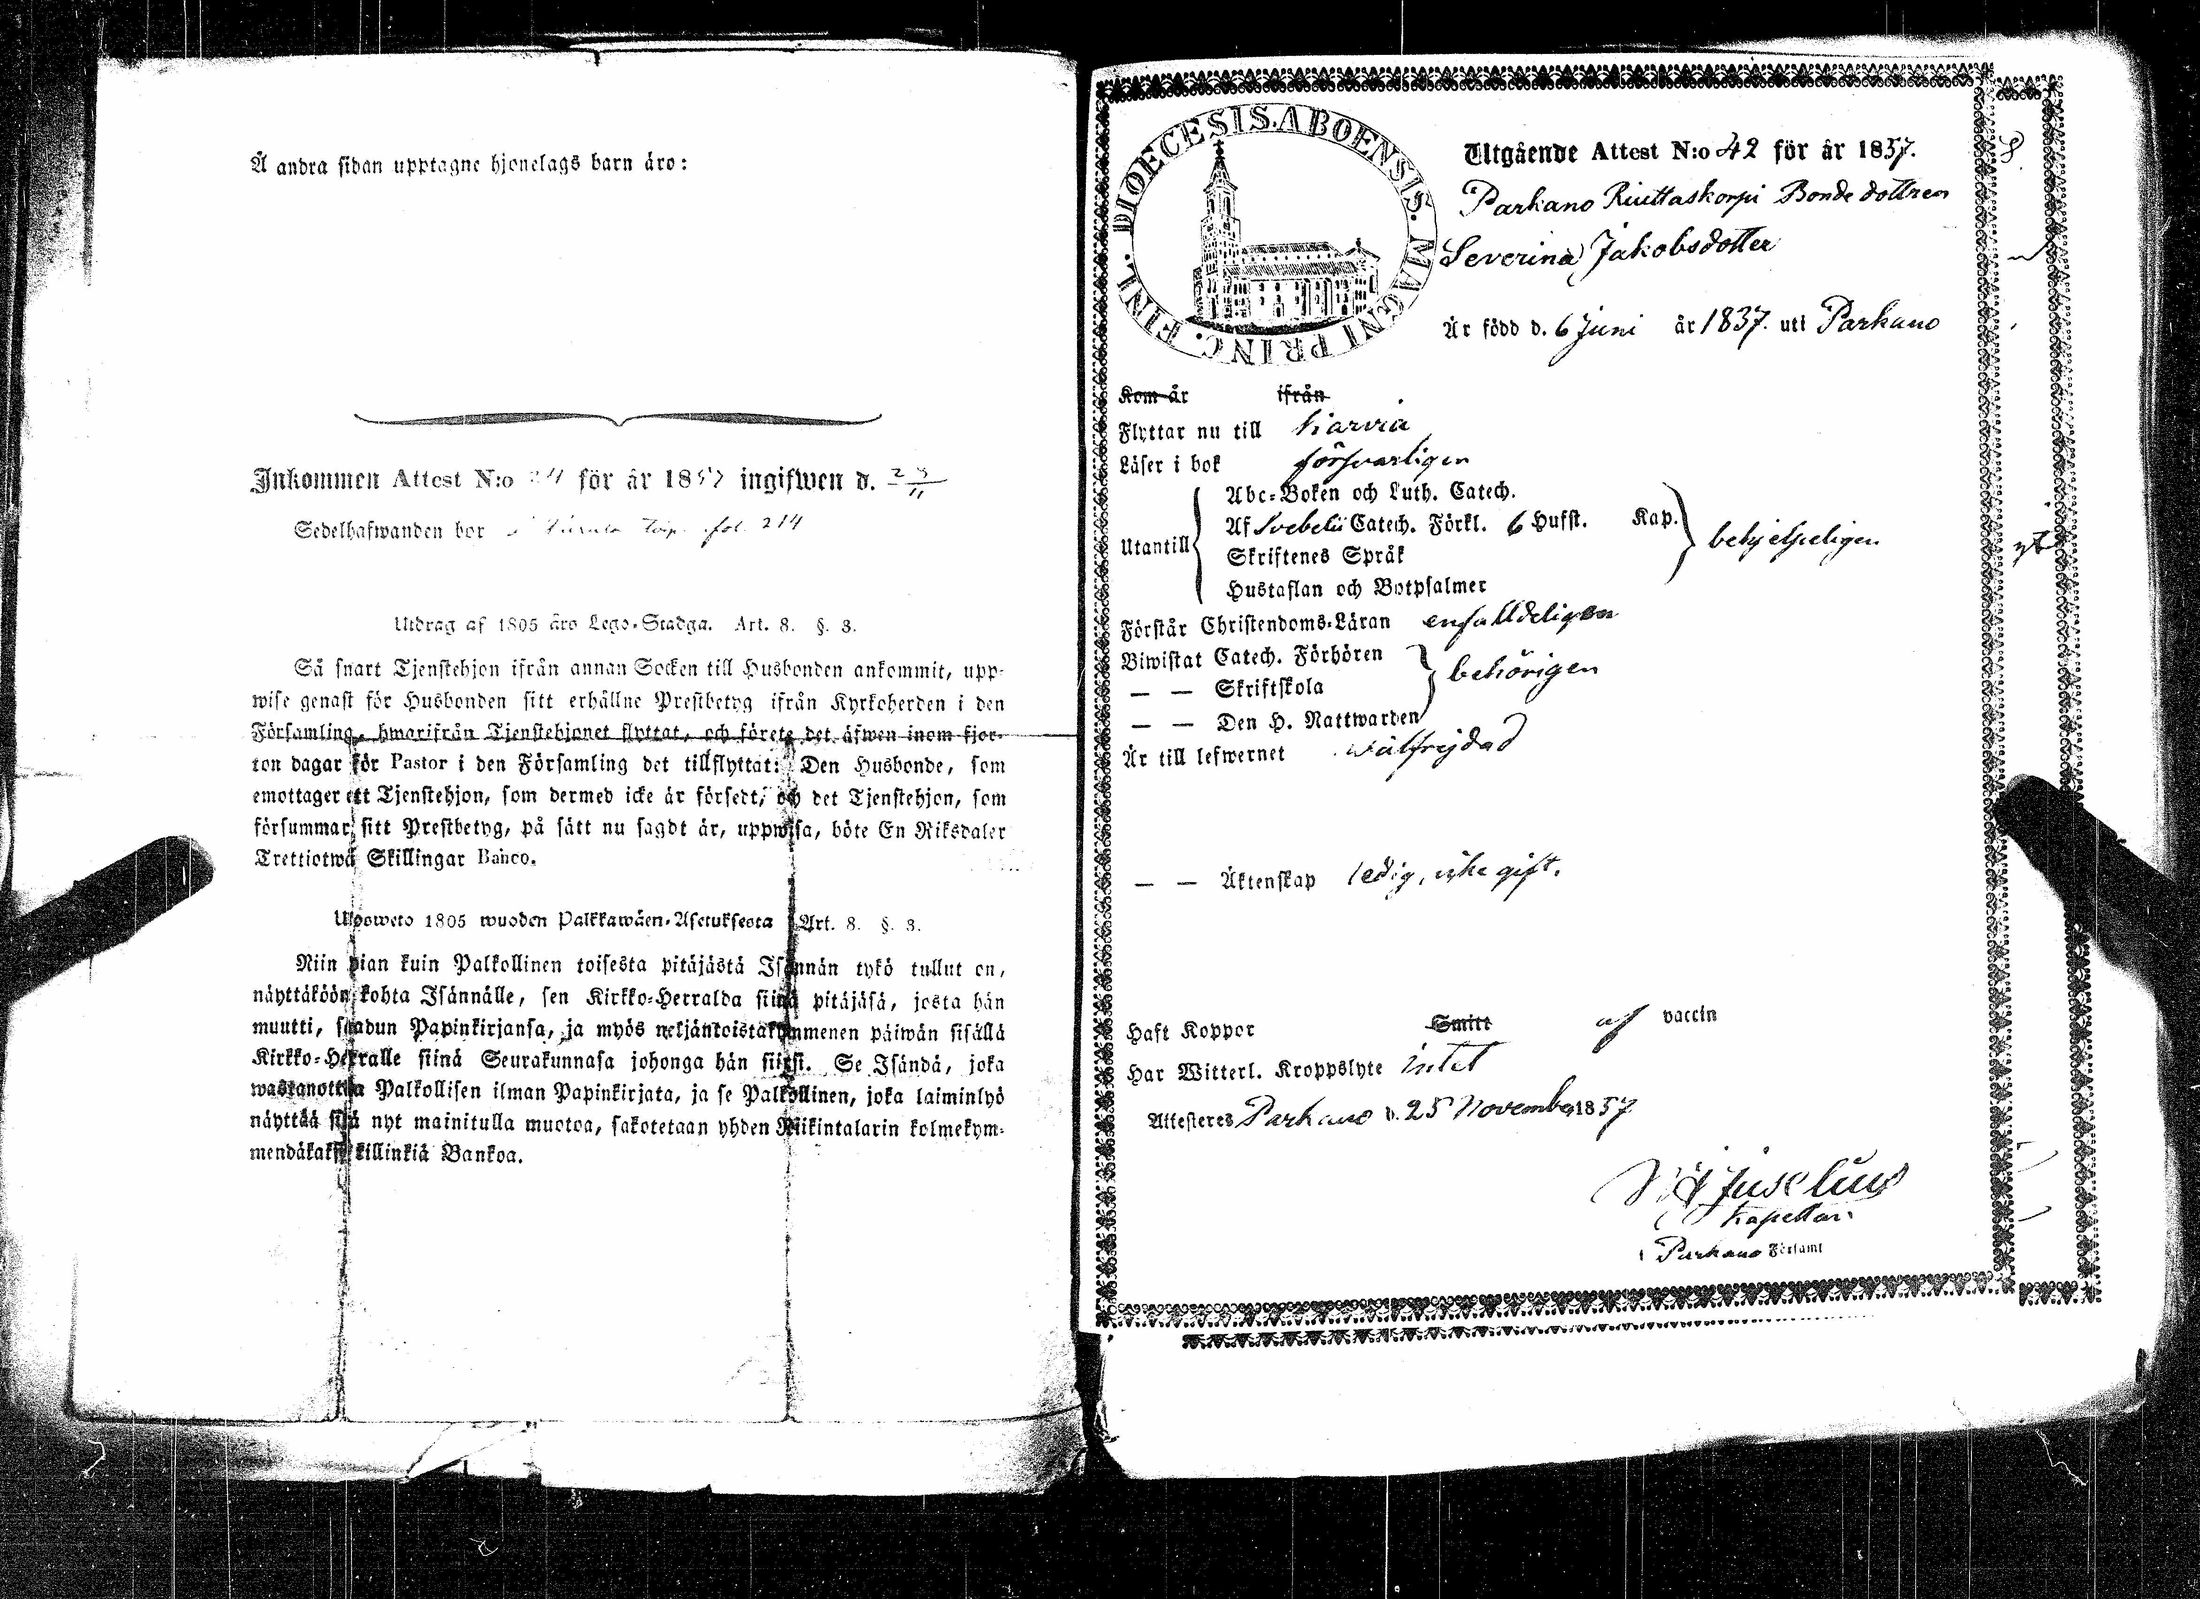 Å andra sidan upptagne hjonelags barn äro:
Inkommen Attest N:o 24 för år 1857 ingifwen d. 25/11
Sedelhafwanden bor fol. 214
Utdrag af 1805 års Lego-Stadga. Art. 8. §. 3.
Så snart Tjenstehjon ifrån annan Socken till Husbonden ankommit, upp-
wise genast för Husbonden sitt erhållne Prestbetyg ifrån Kyrkoherden i den
Församling, hwarifrån Tjenstehjonet flyttat, och förete det äfwen inom fjor-
ton dagar för Pastor i den Församling det tillflyttat: Den Husbonde, som
emottager ett Tjenstehjon, som dermed icke är försedt, och det Tjenstehjon, som
försummar sitt Prestbetyg, på sätt nu sagdt är, uppwisa, böte En Riksdaler
Trettiotwå Skillingar Banco.
Uloosweto 1805 wuoden Palkkawäen-Asetuksesta Art. 8. §. 3.
Niin pian kuin Palkollinen toisesta pitäjästä Isännän tykö tullut on,
näyttäköön kohta Isännälle, sen Kirkko-Herralda siinä pitäjäsä, josta hän
muutti, saadun Papinkirjansa, ja myös neljäntoistakymmenen päiwän sisällä
Kirkko-Herralle siinä Seurakunnasa johonga hän siirsi. Se Isändä, joka
wastanottaa Palkollisen ilman Papinkirjata, ja se Palkollinen, joka laiminlyö
näyttää sitä nyt mainitulla muotoa, sakotetaan yhden Riikintalarin kolmekym-
mendäkaksi killinkiä Bankoa.
DIOECESIS. ABOENSIS. MAGNI PRINC. FINL.
Utgående Attest N:o 42 för år 1857.
Parkano Riuttaskorpi Bonde dottren
Severina Jakobsdotter
Är född d. 6 Juni år 1837. uti Parkano
Kom år ifrån
Flyttar nu till Karvia
Läser i bok försvarligen
Utantill
Abc-Boken och Luth. Catech.
Af Svebelii Catech. Förkl. 6 Hufst. Kap.
Skriftenes Språk
Hustaflan och Botpsalmer
behjelpeligen
Förstår Christendoms-Läran enfalldeligen
Biwistat Catech. Förhören
— — Skriftskola
— — Den H. Nattwarden
behörigen
Är till lefwernet wälfrejdad
— — Äktenskap ledig, icke gift.
Haft Koppor Smitt af vaccin
Har Witterl. Kroppslyte intet
Attesteres Parkano d. 25 November 1857
Juselius
Kapellan
i Parkano Församl